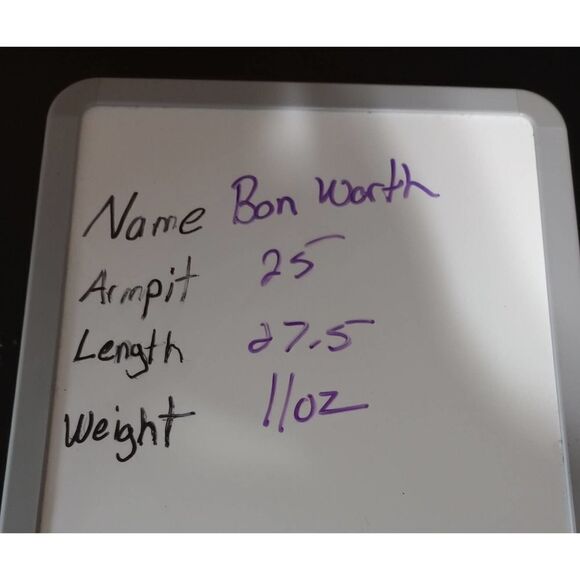 Name Bon Worth
Armpit 25
Length 27.5
Weight 11oz